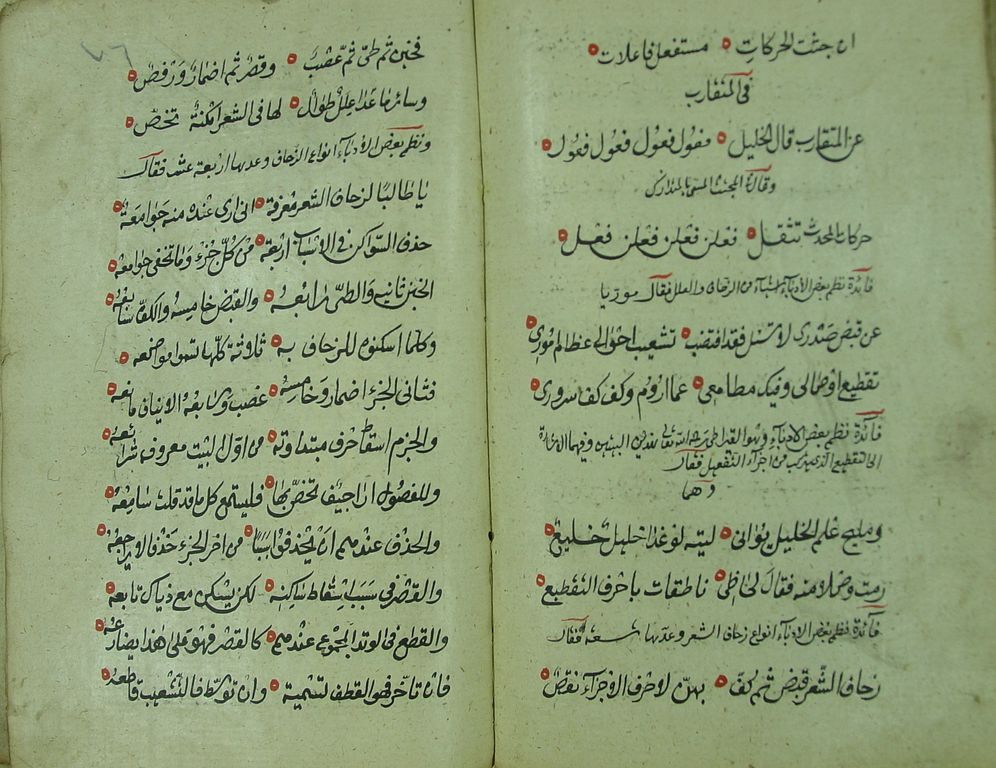 ان جثت الحركات مستفعلن فاعلات
في المتقارب
عن المتقارب قال الخليل فعولن فعول فعول فعول
وقال المسما
حركات المحدث تنتقل فعلن فعلن فعلن فعل
فائدة نظم بعض الادباء من الزحاف والعلل فقال موريا
عن قبض صدري لا تسل فقد اقتضب تشعيث احوالي عظائم
تقطيع اوصالي وفيك مطامعي عما اروم وكف كف سروري
فائدة نظم بعض الادباء وهو القيراطي رحمه الله تعالى هذين البيتين وفيهما
الى التقطيع الذي من اجزاء التفعيل فقال
وهما
ومليح علم الخليل يواني ليته لو غدا خليل خليع
رمت وصلا منه فقال لحاظي ناطقات باحرف التقطيع
فائدة نظم بعض الادباء انواع زحاف الشعر وعدتها تسعة فقال
زحاف الشعر قبض ثم كف بهن لاحرف الاجزاء نقص
فخبن ثم طي ثم عصب وقصر ثم اضمار ورفض
وسائر ما عدا علل طوال لها في الشعر امكنة تخص
ونظم بعض الادباء انواع الزحاف وعدها اربعة عشر فقال
يا طالبا لزحاف الشعر معرفة اني ارى عنده منه جوامعه
حذف السواكن في الاسباب اربعة من كل جزء وما تخفى جوامعه
الخبن ثانيه والطي رابعه والقبض خامسه والكف سابعه
وكلما اسكنوه للزحاف به ثلاثة كلها سموا مواضعه
فثاني الجزء اضمار وخامسه عصب وسابعه
والخرم اسقاط حرف مبتداوته من اول البيت معروف شرائعه
وللفصول تخص بها فليستمع كل ما قد قلت سامعه
والحذف عندهم ان يحذفوا سببا من اخر الجزء حذفا لا يراجعه
والقصر في سبب اسقاط ساكنه لكن يسكن مع ذياك تابعه
والقطع في الوتد المجموع عندهم كالقصر فهو على هذا يضارعه
فان تاخر فهو القطف تسمية وان توسط فالتشعيث قاطعه